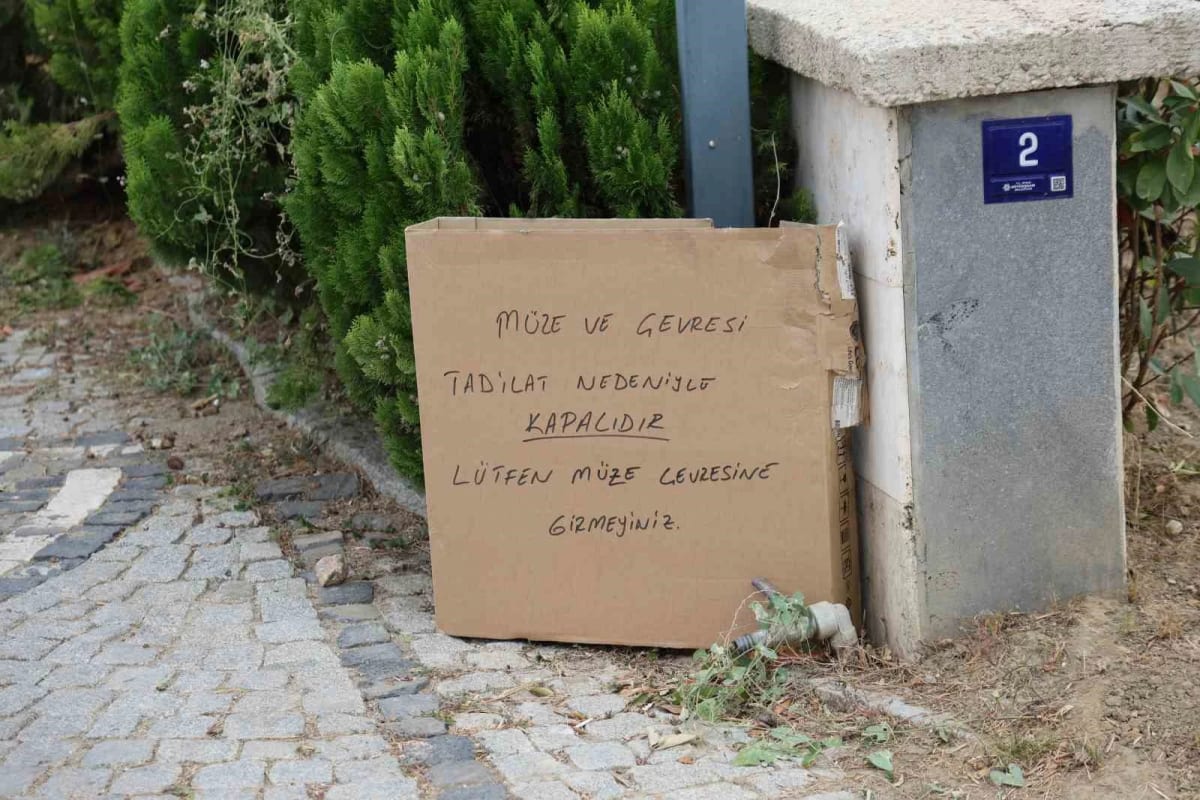 MÜZE VE ÇEVRESİ
TADİLAT NEDENİYLE
KAPALIDIR
LÜTFEN MÜZE ÇEVRESİNE
GİRMEYİNİZ.
2